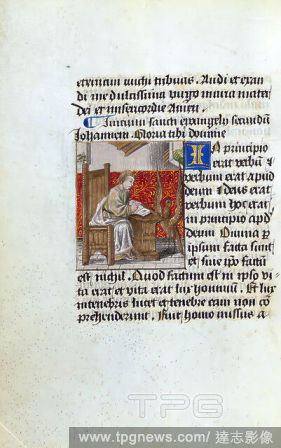 eternam michi tribuas. Audi et exau
di me dulcissima virgo maria mater
dei et misericordie Amen.
Inicium sancti evangelij secundũ
Johannem. Gloria tibi domine
In principio
erat verbũ &
verbum erat apud
deum & deus erat
verbum hoc erat
in principio apd
deum Omnia p̱
ipsum facta sunt
et sine ipo factũ
est nichil. Quod factum est in ipso vi
ta erat et vita erat lux hominũ. Et lux
in tenebris lucet et tenebre eam non cõ
prehenderunt. Fuit homo missus a
TPG
www.tpgnews.com / 達志影像